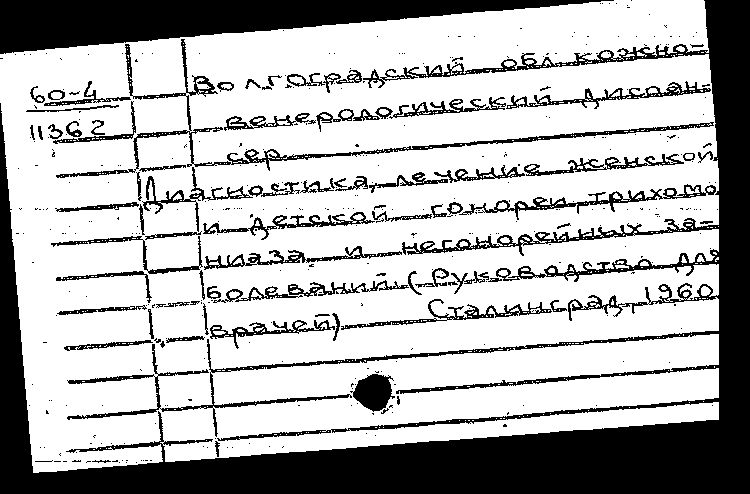 60-4
11362
Волгоградский обл кожно-
венерологический диспан-
сер.
Диагностика, лечение женской
и детской гонореи, трихомо
ниаза и негонорейных за-
болеваний (Руководство для
врачей) Сталинград, 1960